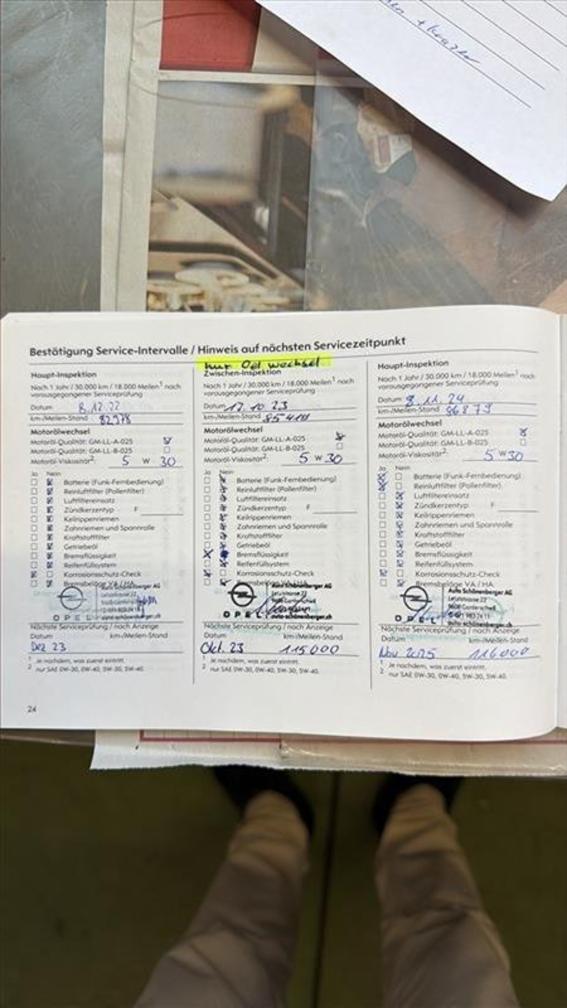 Bestätigung Service-Intervalle / Hinweis auf nächsten Servicezeitpunkt
Haupt-Inspektion
Nach 1 Jahr / 30.000 km / 18.000 Meilen¹ nach
vorausgegangener Serviceprüfung
Datum 8.12.22
km-/Meilen-Stand 82978
Motorölwechsel
Motoröl-Qualität: GM-LL-A-025
Motoröl-Qualität: GM-LL-B-025
Motoröl-Viskosität²: 5 W 30
Ja Nein
Batterie (Funk-Fernbedienung)
Reinluftfilter (Pollenfilter)
Luftfiltereinsatz
Zündkerzentyp F
Keilrippenriemen
Zahnriemen und Spannrolle
Kraftstofffilter
Getriebeöl
Bremsflüssigkeit
Reifenfüllsystem
Korrosionsschutz-Check
OPEL
Nächste Serviceprüfung / nach Anzeige
Datum km-/Meilen-Stand
Dez 23
¹ Je nachdem, was zuerst eintritt.
² nur SAE 0W-30, 0W-40, 5W-30, 5W-40.
24
nur Oel wechsel
Zwischen-Inspektion
Nach 1 Jahr / 30.000 km / 18.000 Meilen¹ nach
vorausgegangener Serviceprüfung
Datum 12.10 23
km-/Meilen-Stand 85410
Motorölwechsel
Motoröl-Qualität: GM-LL-A-025
Motoröl-Qualität: GM-LL-B-025
Motoröl-Viskosität²: 5 W 30
Ja Nein
Batterie (Funk-Fernbedienung)
Reinluftfilter (Pollenfilter)
Luftfiltereinsatz
Zündkerzentyp F
Keilrippenriemen
Zahnriemen und Spannrolle
Kraftstofffilter
Getriebeöl
Bremsflüssigkeit
Reifenfüllsystem
Korrosionsschutz-Check
Auto Schönenberger AG
OPEL
Nächste Serviceprüfung / nach Anzeige
Datum km-/Meilen-Stand
Okt. 23 115000
¹ Je nachdem, was zuerst eintritt.
² nur SAE 0W-30, 0W-40, 5W-30, 5W-40.
Haupt-Inspektion
Nach 1 Jahr / 30.000 km / 18.000 Meilen¹ nach
vorausgegangener Serviceprüfung
Datum 8.11.24
km-/Meilen-Stand 86879
Motorölwechsel
Motoröl-Qualität: GM-LL-A-025
Motoröl-Qualität: GM-LL-B-025
Motoröl-Viskosität²: 5 W 30
Ja Nein
Batterie (Funk-Fernbedienung)
Reinluftfilter (Pollenfilter)
Luftfiltereinsatz
Zündkerzentyp F
Keilrippenriemen
Zahnriemen und Spannrolle
Kraftstofffilter
Getriebeöl
Bremsflüssigkeit
Reifenfüllsystem
Korrosionsschutz-Check
Bremsbeläge VA / HA
Auto Schönenberger AG
OPEL
Nächste Serviceprüfung / nach Anzeige
Datum km-/Meilen-Stand
Nov 2025 116000
¹ Je nachdem, was zuerst eintritt.
² nur SAE 0W-30, 0W-40, 5W-30, 5W-40.